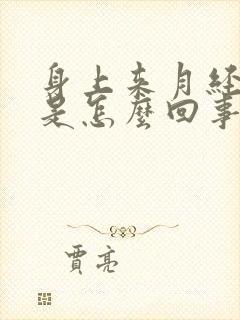 身上来月经
是怎麼回事
賈亮